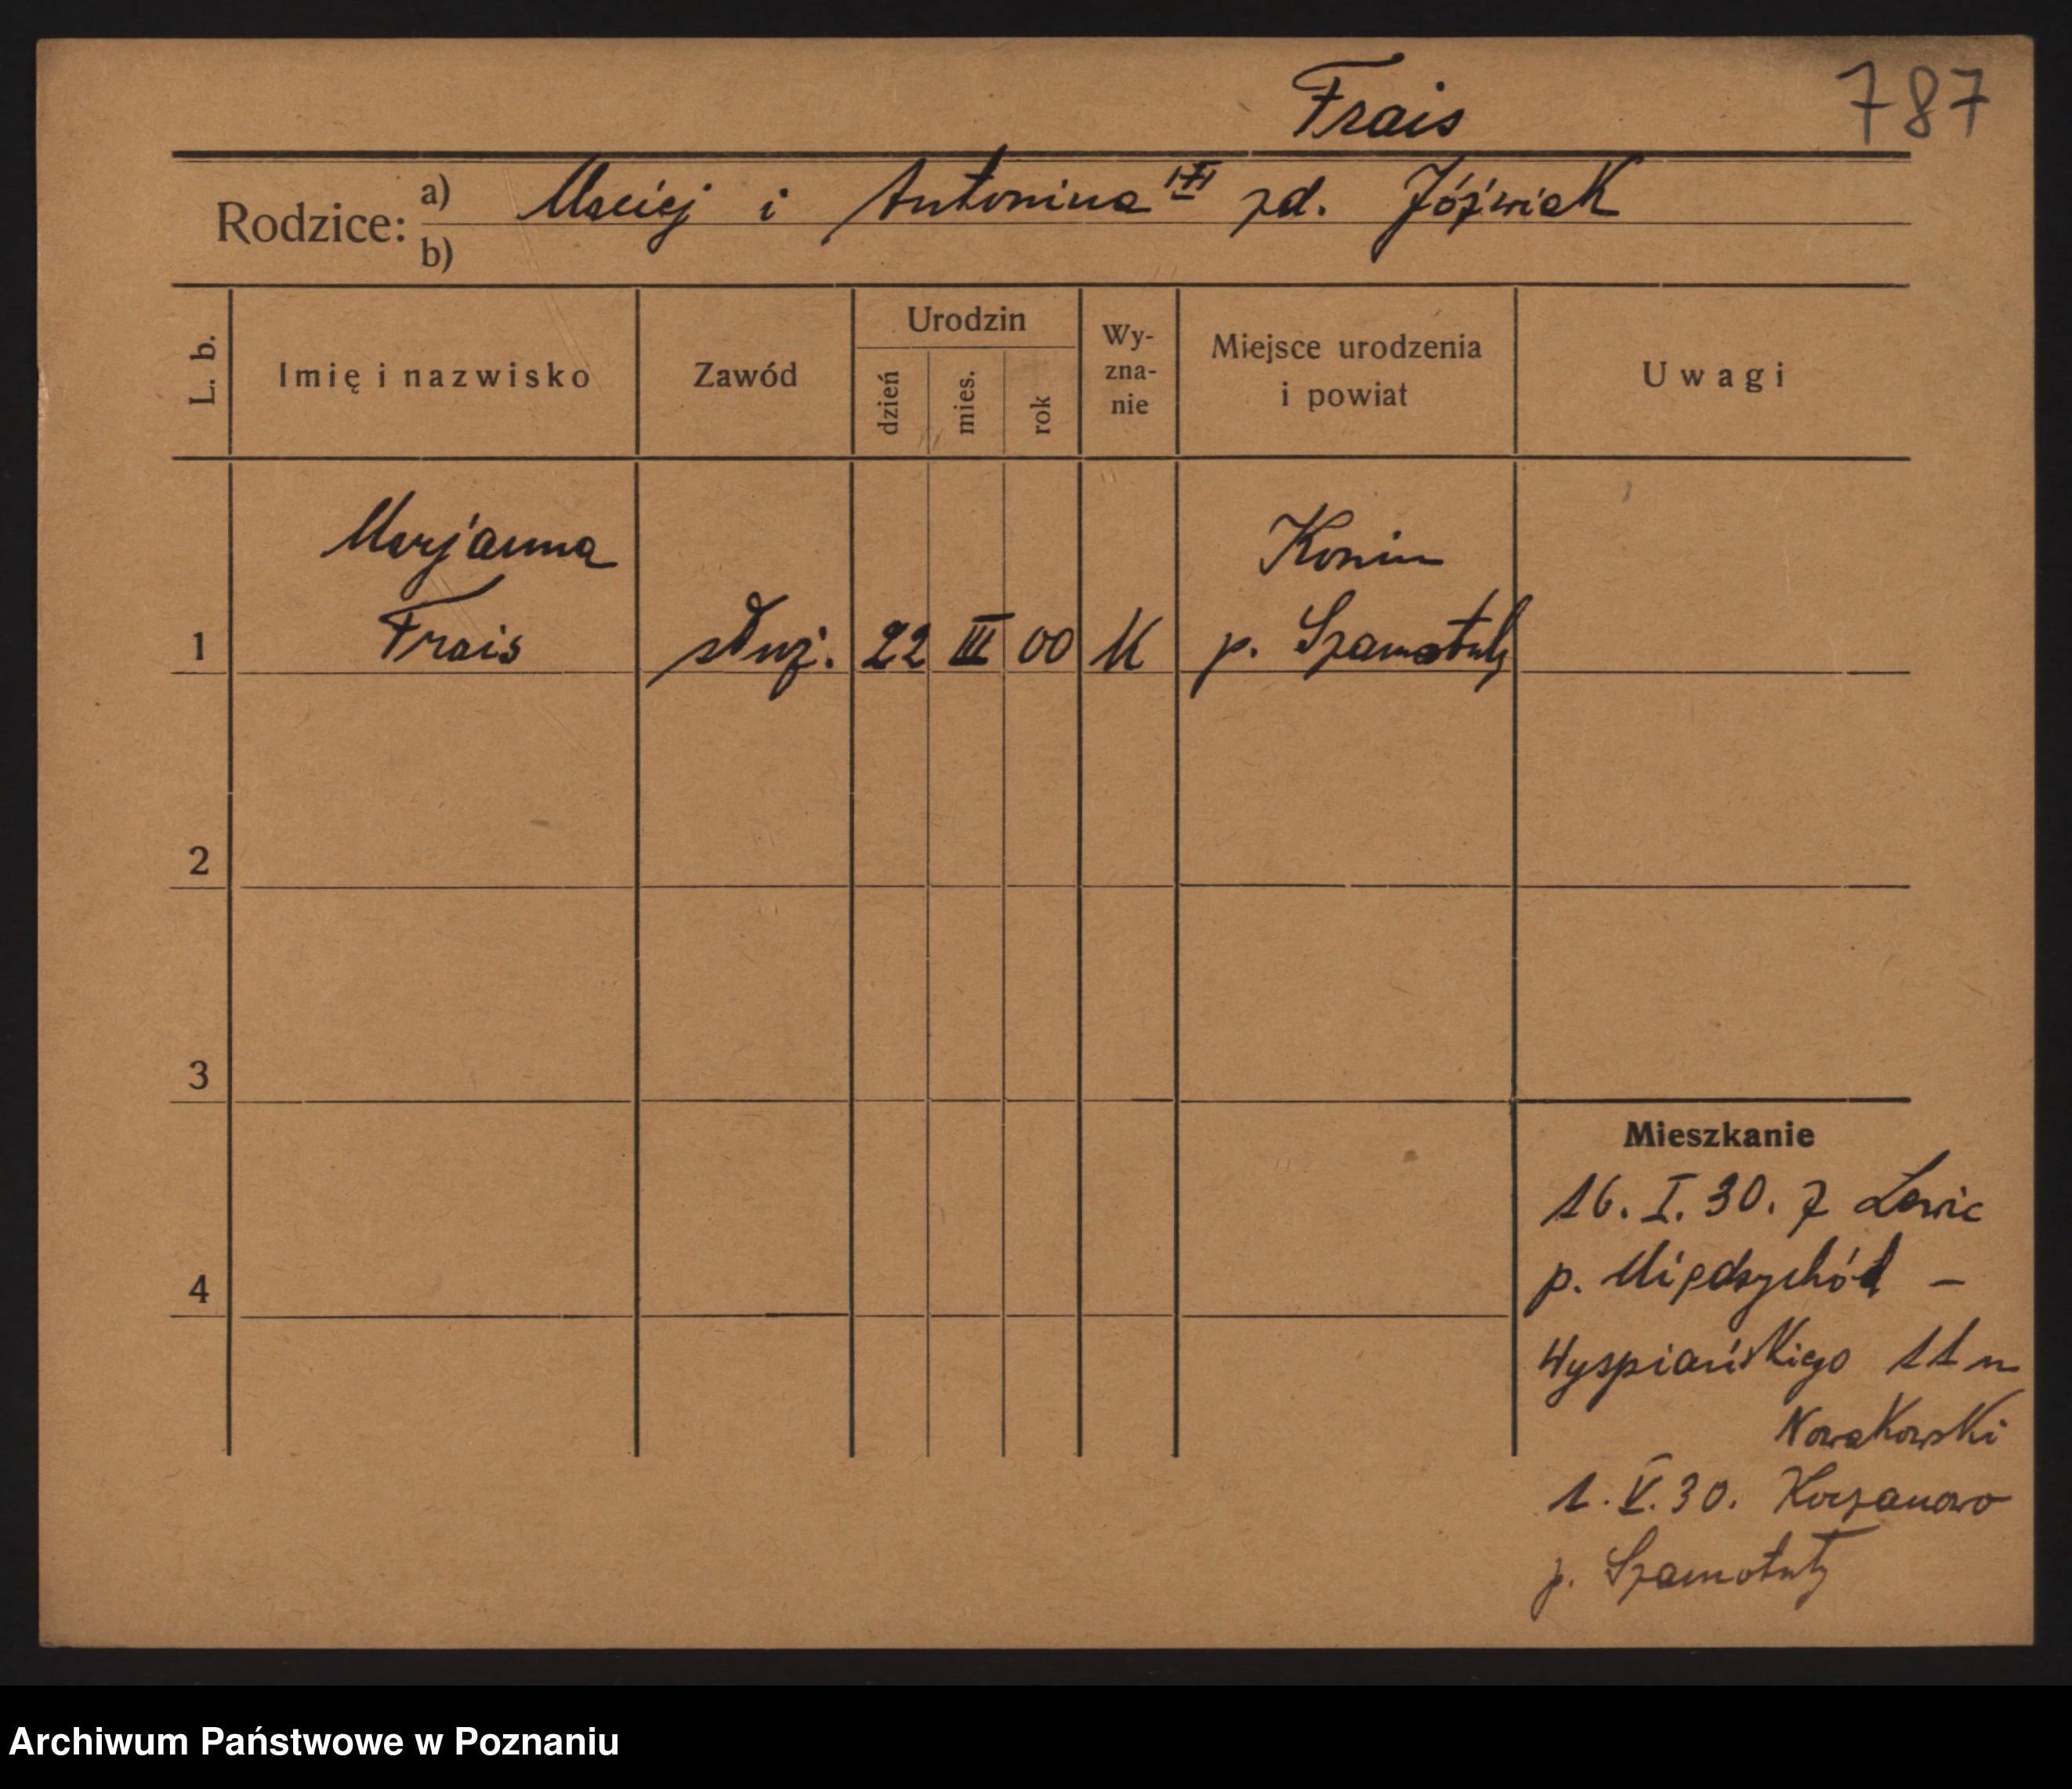 Frais 787
Rodzice: a) Maciej i Antonina zd. Jóźwiak
b)
L. b. Imię i nazwisko Zawód Urodzin dzień mies. rok Wy-zna-nie Miejsce urodzenia i powiat Uwagi
Marjanna Konin
1 Frais służ. 22 III 00 K p. Szamotuły
2
3
Mieszkanie
16. I. 30. z Lewic
p. Międzychód –
4
Wyspiańskiego 11 u
Nowakowski
1. V. 30.
p. Szamotuły
Archiwum Państwowe w Poznaniu